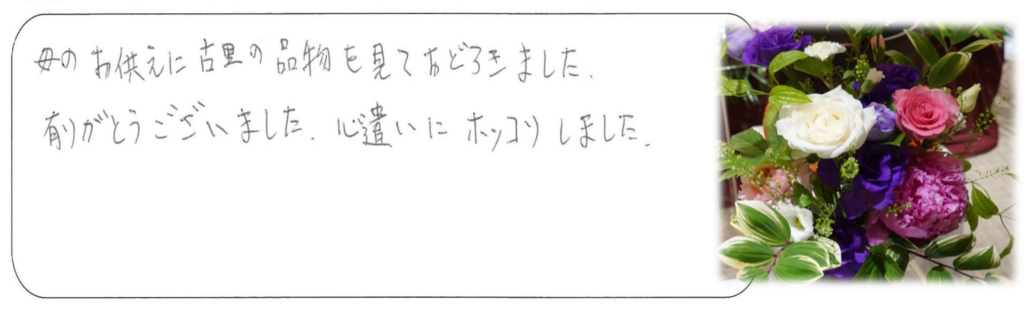 母のお供えに古里の品物を見ておどろきました.
有りがとうございました. 心遣いにホッコリしました.